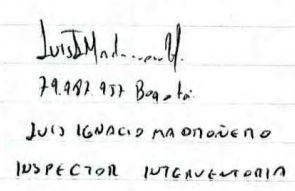 79.487.957 Bogotá
LUIS IGNACIO MADROÑERO
INSPECTOR INTERVENTORIA